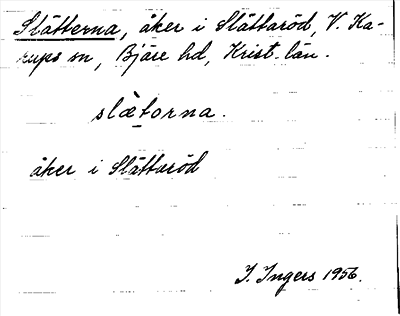 Slätterna, åker i Slättaröd, V. Ka-
rups sn, Bjäre hd, Krist. län.
slætorna.
åker i Slättaröd
I. Ingers 1956.